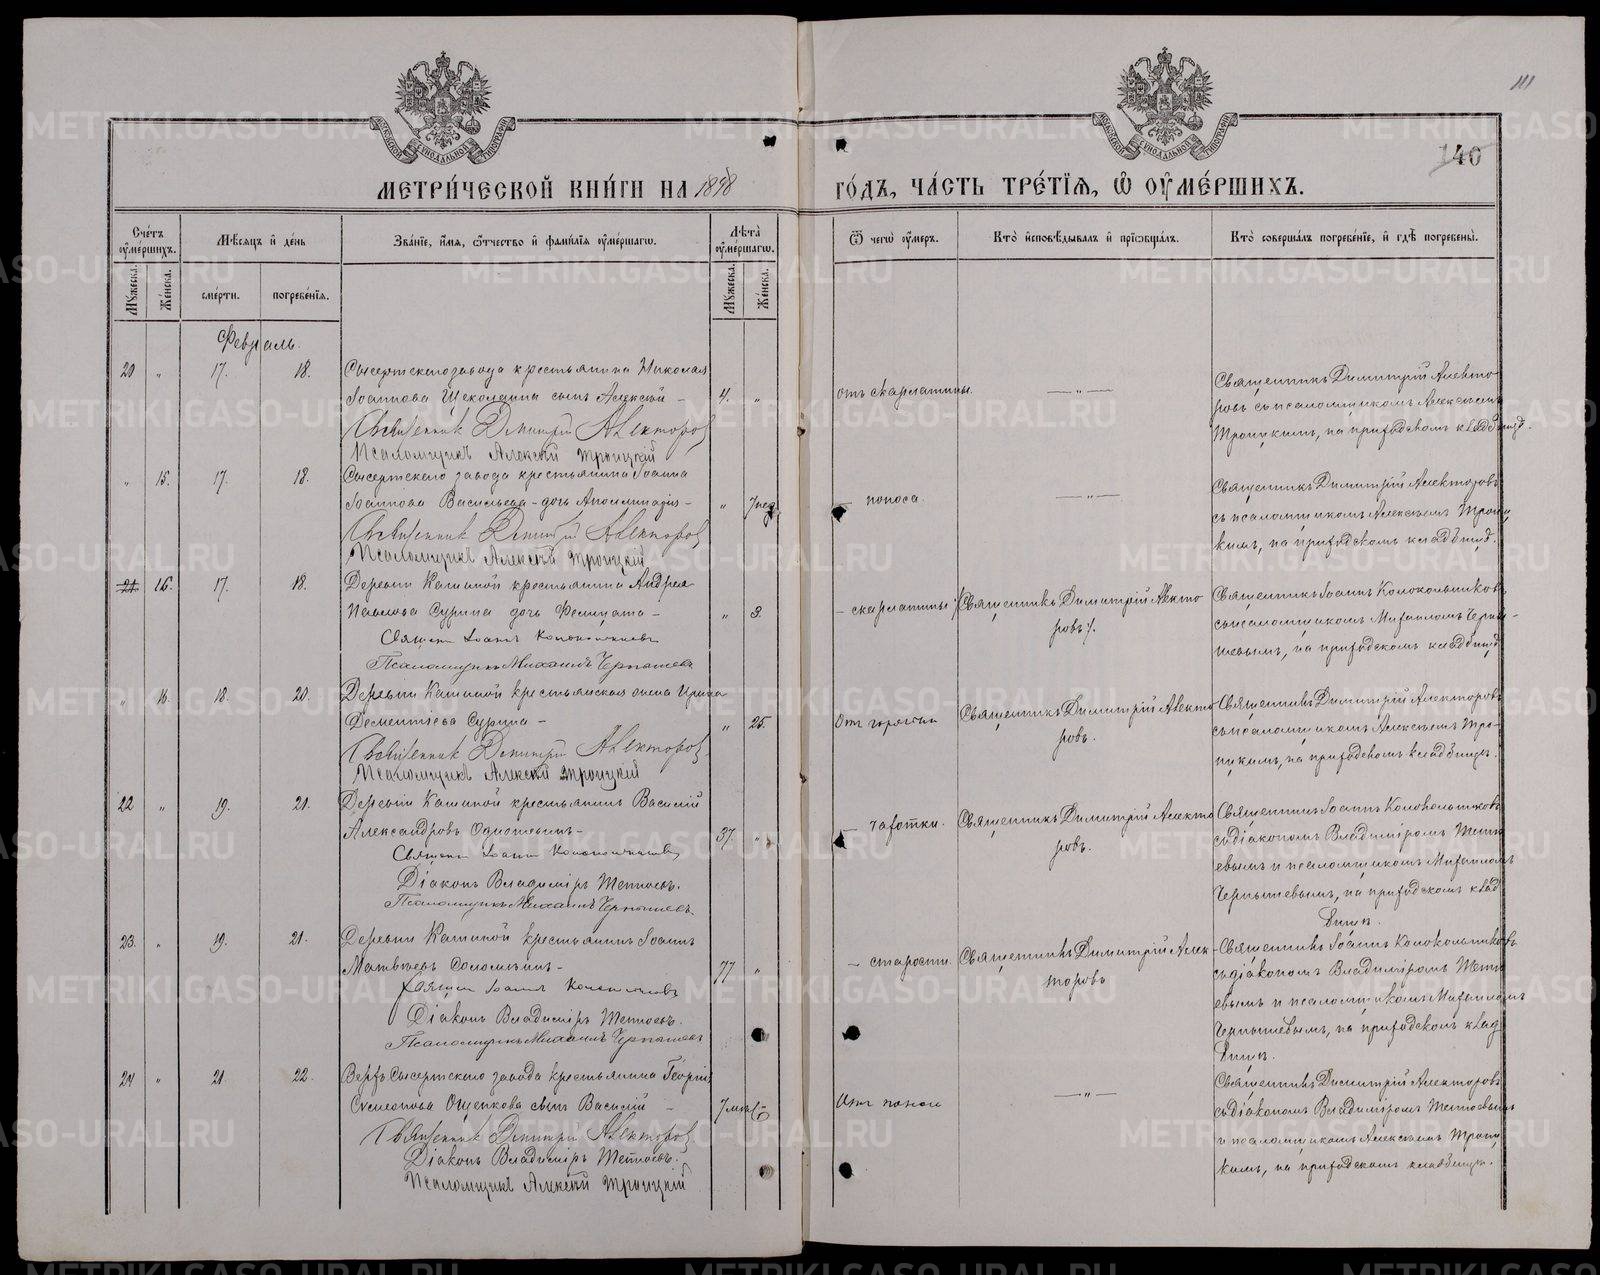 111
140
МОСКОВСКОЙ СѴНОДАЛЬНОЙ ТИПОГРАФІИ
МОСКОВСКОЙ СѴНОДАЛЬНОЙ ТИПОГРАФІИ
МЕТРИ́ЧЕСКОЙ КНИ́ГИ НА 1898
ГО́ДЪ, ЧА́СТЬ ТРЕ́ТІѦ, Ѡ҆ ОУ҆МЕ́РШИХЪ.
Сче́тъ оу҆ме́ршихъ.
Мꙋжеска.
Же́нска.
Мѣ́сѧцъ и҆ де́нь
сме́рти.
погребе́нїѧ.
Зва́нїе, и҆́мѧ, ѻ҆́тчество и҆ фами́лїѧ оу҆ме́ршагѡ.
Лѣ́та оу҆ме́ршагѡ.
Мꙋжеска.
Же́нска.
Ѿ чегѡ̀ оу҆́меръ.
Кто̀ и҆сповѣ́дывалъ и҆ прїѡбща́лъ.
Кто̀ соверша́лъ погребе́нїе, и҆ гдѣ̀ погребены̀.
Февраль.
20 " 17. 18. Сысертскаго завода крестьянина Николая
Іоаннова Щеколдина сынъ Алексѣй – 4. "
Священник Димитрій Алекторов
Псаломщикъ Алексѣй Троицкій
отъ скарлатины.
— " —
Священникъ Димитрій Алекто-
ровъ съ псаломщикомъ Алексѣемъ
Троицкимъ, на приходскомъ кладбищѣ.
" 15. 17. 18. Сысертскаго завода крестьянина Іоанна
Іоаннова Васильева – дочь Аполлинарія – " 7 нед.
Священник Димитрій Алекторов
Псаломщикъ Алексѣй Троицкій
– поноса.
— " —
Священникъ Димитрій Алекторовъ
съ псаломщикомъ Алексѣемъ Троиц
кимъ, на приходскомъ кладбищѣ.
21 16. 17. 18. Деревни Кашиной крестьянина Андрея
Павлова Сурина дочь Фелицата – " 3.
Священ. Іоаннъ Колокольниковъ
Псаломщикъ Михаилъ Чернышевъ
– скарлатины
Священникъ Димитрій Алекто
ровъ
Священникъ Іоаннъ Колокольниковъ
съ псаломщикомъ Михаиломъ Черны-
шевымъ, на приходскомъ кладбищѣ
" 16. 18. 20. Деревни Кашиной крестьянская жена Ирина
Дементіева Сурина – " 25.
Священник Димитрій Алекторов
Псаломщикъ Алексѣй Троицкій
Отъ горячки
Священникъ Димитрій Алекто
ровъ.
Священникъ Димитрій Алекторовъ
съ псаломщикомъ Алексѣемъ Тро-
ицкимъ, на приходскомъ кладбищѣ.
22 " 19. 21. Деревни Кашиной крестьянинъ Василій
Александровъ – 37 "
Священ. Іоаннъ Колокольниковъ
Діаконъ Владиміръ Тетюевъ.
Псаломщикъ Михаилъ Чернышевъ.
– чахотки.
Священникъ Димитрій Алекто
ровъ.
Священникъ Іоаннъ Колокольниковъ
съ діакономъ Владиміромъ Тетю
евымъ и псаломщикомъ Михаиломъ
Чернышевымъ, на приходскомъ клад
бищѣ.
23. " 19. 21. Деревни Кашиной крестьянинъ Іоаннъ
Матвѣевъ Соломеинъ – 77 "
Священ. Іоаннъ Колокольниковъ
Діаконъ Владиміръ Тетюевъ.
Псаломщикъ Михаилъ Чернышевъ
– старости.
Священникъ Димитрій Алек-
торовъ
Священникъ Іоаннъ Колокольниковъ
съ діакономъ Владиміромъ Тетю
евымъ и псаломщикомъ Михаиломъ
Чернышевымъ, на приходскомъ клад
бищѣ.
24 " 21. 22. Верхъ Сысертскаго завода крестьянина Георгія
Ощепкова сынъ Василій – 7
Священник Димитрій Алекторов
Діаконъ Владиміръ Тетюевъ.
Псаломщикъ Алексѣй Троицкій
Отъ поноса
— " —
Священникъ Димитрій Алекторовъ
съ діакономъ Владиміромъ Тетюевымъ
и псаломщикомъ Алексѣемъ Троиц
кимъ, на приходскомъ кладбищѣ.
METRIKI.GASO-URAL.RU